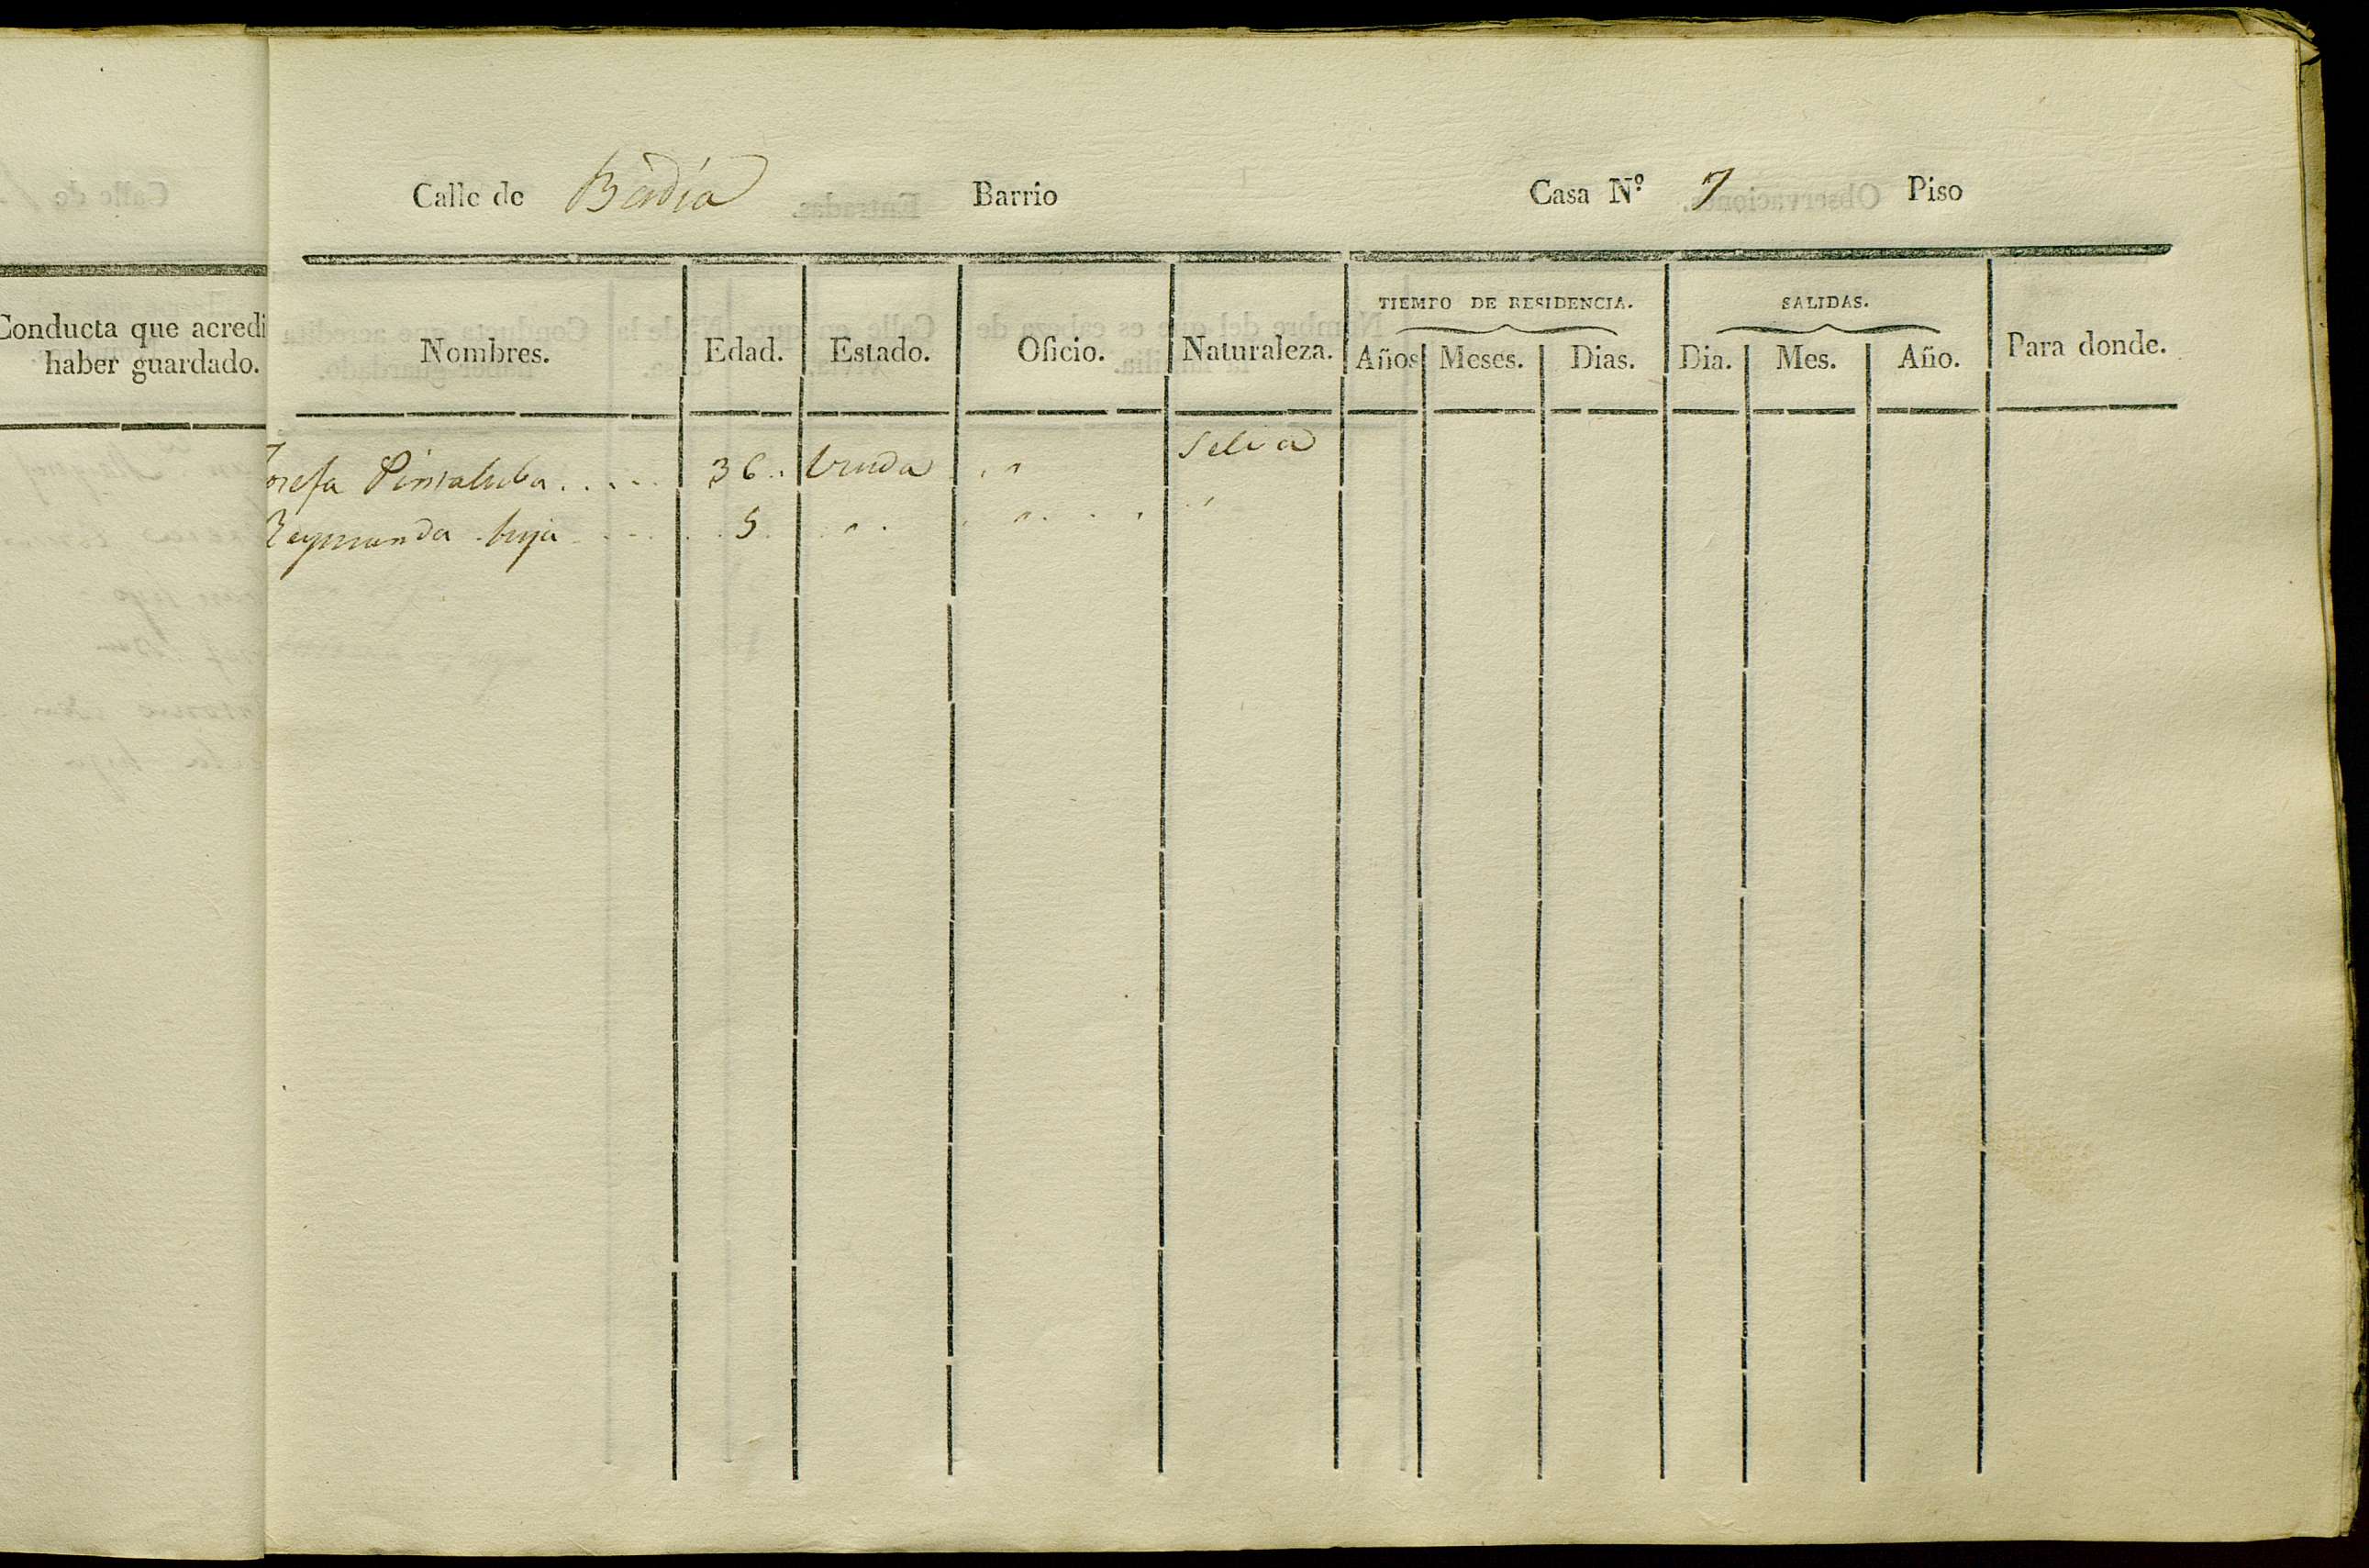 Calle de Badia Barrio Casa N.º 7 Piso
Conducta que acredi
haber guardado.
TIEMPO DE RESIDENCIA. SALIDAS.
Nombres. Edad. Estado. Oficio. Naturaleza. Años Meses. Dias. Dia. Mes. Año. Para donde.
Josefa Pintaluba..... 36.. Viuda " Selva
Raymunda hija..... 5 " " "